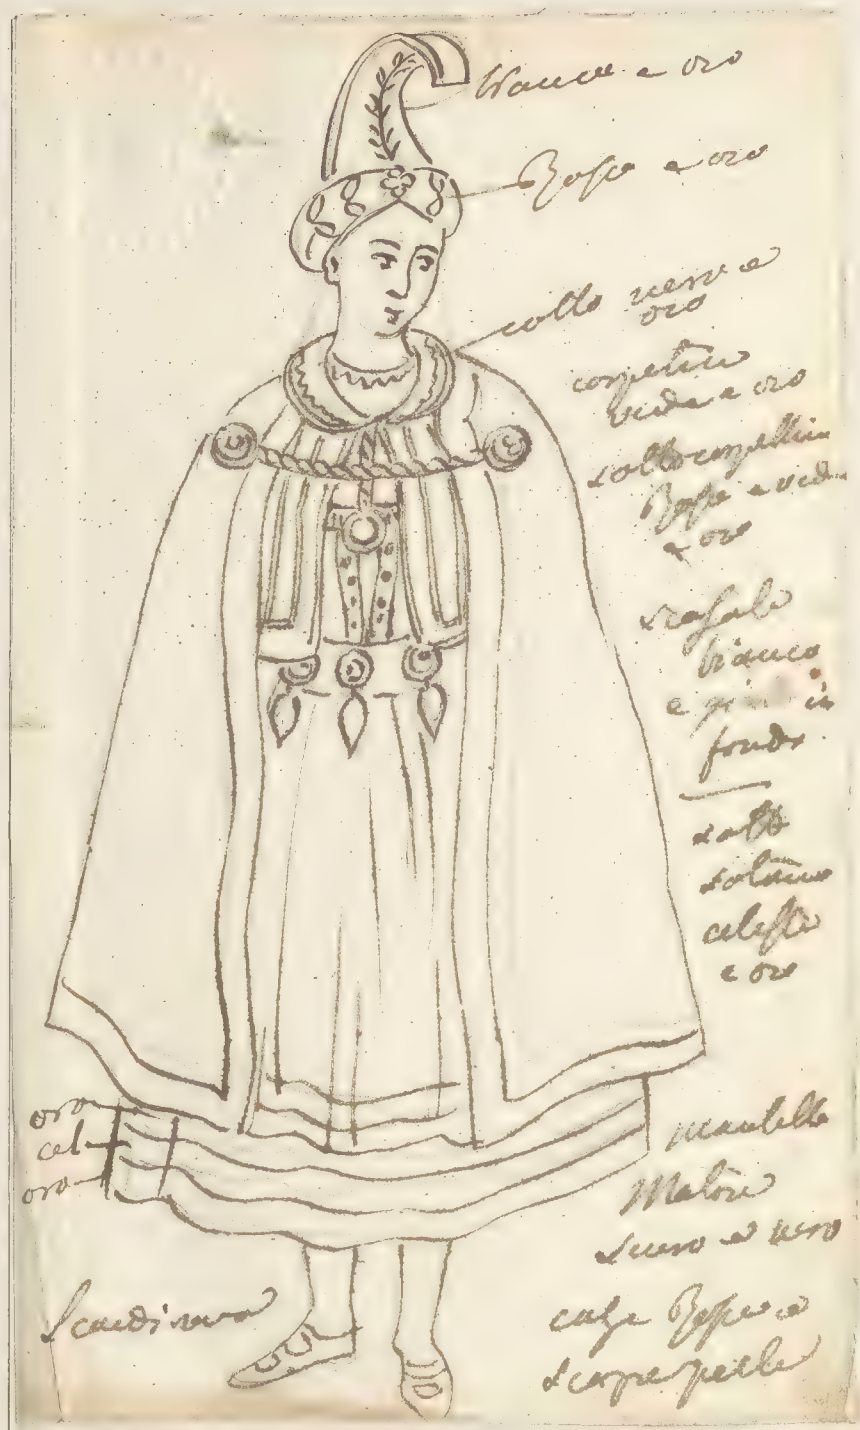 bianco e oro
Rosso e oro
collo nero e
oro
corpetto
verde e oro
sottocorpettino
Rosso e verde
e oro
bianca
e in
fondo
sotto
sottana
celeste
e oro
oro
cel
oro
mantello
scuro e nero
calze Rosse e
scarpe gialle